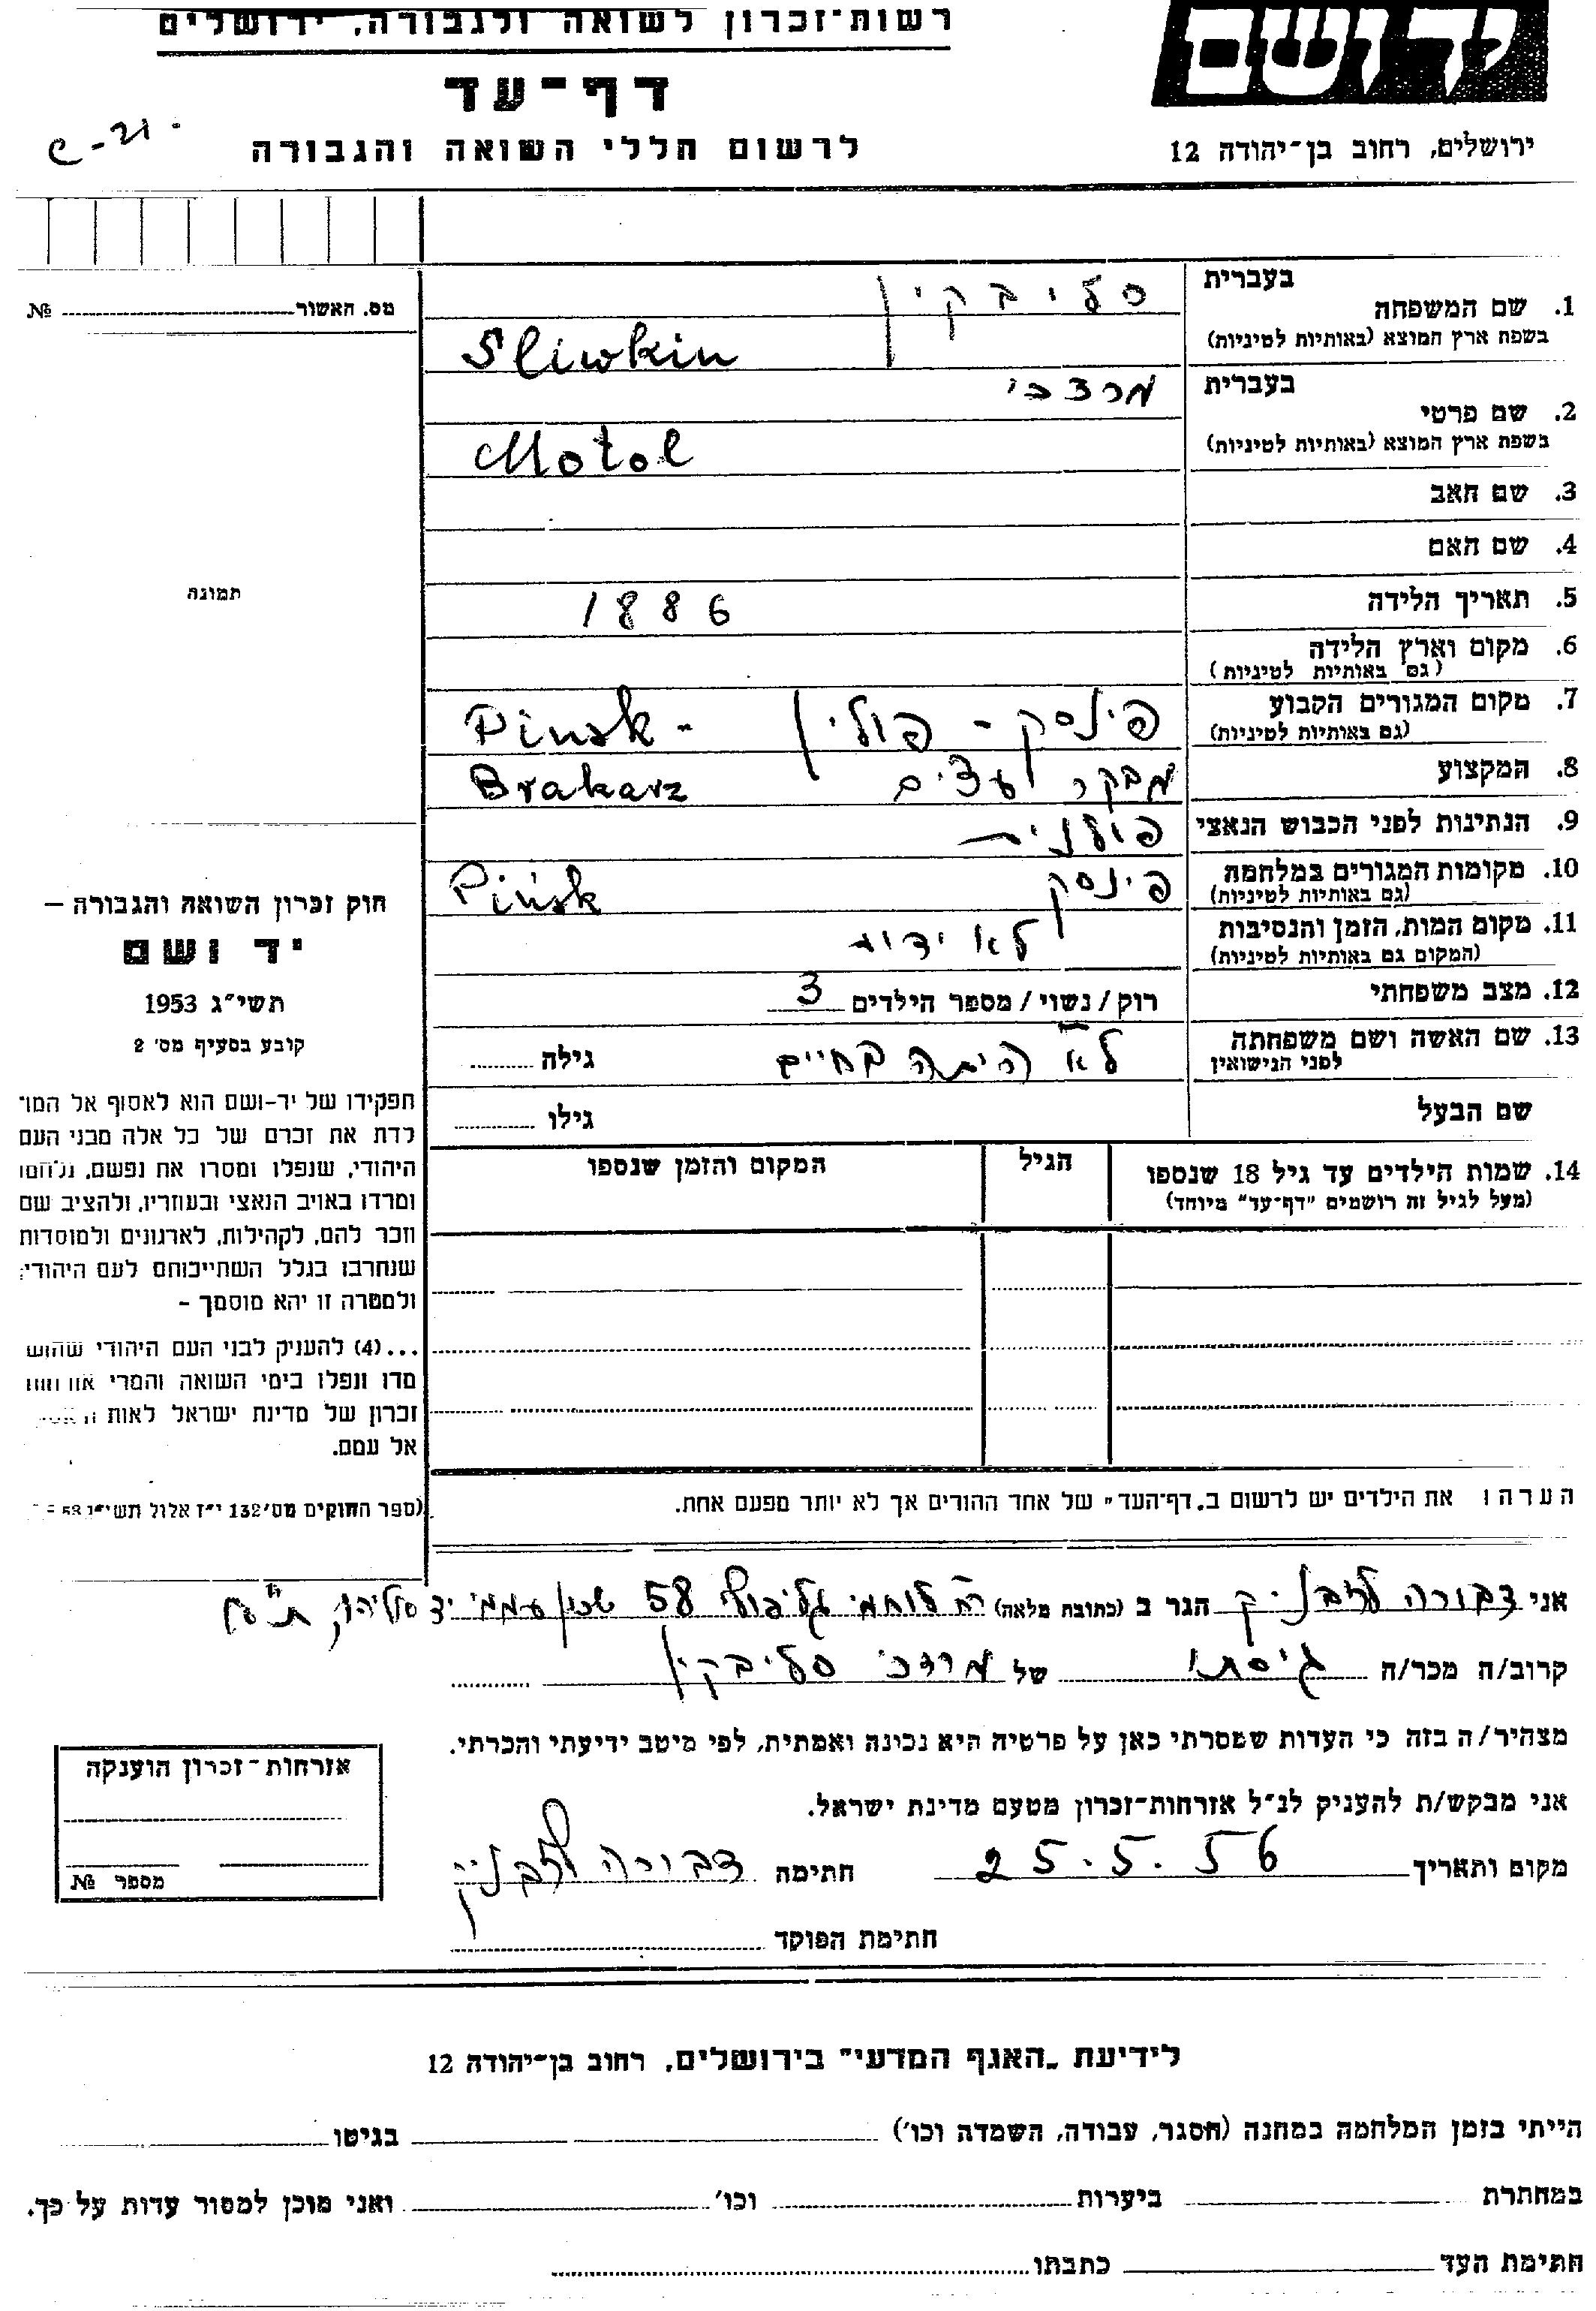 רשות-זכרון לשואה ולגבורה, ירושלים
דף-עד
לרשום חללי השואה והגבורה
יד ושם
ירושלים, רחוב בן-יהודה 12
בעברית
1. שם המשפחה
בשפת ארץ המוצא (באותיות לטיניות)
סליבקין
Sliwkin
מס. האשור № 
בעברית
2. שם פרטי
בשפת ארץ המוצא (באותיות לטיניות)
מרדכי
Motol
3. שם האב
4. שם האם
תמונה
5. תאריך הלידה 1886
6. מקום וארץ הלידה
(גם באותיות לטיניות)
7. מקום המגורים הקבוע פינסק - פולין Pinsk -
(גם באותיות לטיניות)
8. המקצוע מבקר עצים Brakarz
9. הנתינות לפני הכבוש הנאצי פולנית
10. מקומות המגורים במלחמה פינסק Pińsk
(גם באותיות לטיניות)
11. מקום המות, הזמן והנסיבות לא ידוע
(המקום גם באותיות לטיניות)
12. מצב משפחתי רוק/נשוי/מספר הילדים 3
13. שם האשה ושם משפחתה לא היתה בחיים גילה
לפני הנישואין
שם הבעל גילו
14. שמות הילדים עד גיל 18 שנספו הגיל המקום והזמן שנספו
(מעל לגיל זה רושמים "דף-עד" מיוחד)
חוק זכרון השואה והגבורה –
יד ושם
תשי"ג 1953
קובע בסעיף מס' 2
תפקידו של יד-ושם הוא לאסוף אל המו־
לדת את זכרם של כל אלה מבני העם
היהודי, שנפלו ומסרו את נפשם, נלחמו
ומרדו באויב הנאצי ובעוזריו, ולהציב שם
וזכר להם, לקהילות, לארגונים ולמוסדות
שנחרבו בגלל השתייכותם לעם היהודי;
ולמטרה זו יהא מוסמך –
...(4) להעניק לבני העם היהודי שהוש
מדו ונפלו בימי השואה והמרי
זכרון של מדינת ישראל לאות
אל עמם.
(ספר החוקים מס' 132 י"ז אלול תשי"ג
הערה: את הילדים יש לרשום ב"דף-העד" של אחד ההורים אך לא יותר מפעם אחת.
אני דבורה הגר ב (כתובת מלאה) רח לוחמי גליפולי 58 שכון עממי יד אליהו, ת"א
קרוב/ה מכר/ה גיסתו של מרדכי סליבקין
מצהיר/ה בזה כי העדות שמסרתי כאן על פרטיה היא נכונה ואמתית, לפי מיטב ידיעתי והכרתי.
אני מבקש/ת להעניק לנ"ל אזרחות-זכרון מטעם מדינת ישראל.
מקום ותאריך 25.5.56 חתימה דבורה
חתימת הפוקד
אזרחות-זכרון הוענקה
מספר №
לידיעת "האגף המדעי" בירושלים, רחוב בן-יהודה 12
הייתי בזמן המלחמה במחנה (הסגר, עבודה, השמדה וכו') בגיטו
במחתרת ביערות וכו' ואני מוכן למסור עדות על כך.
חתימת העד כתבתו